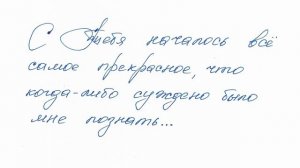 С Тебя началось всё
самое прекрасное, что
когда-либо суждено было
мне познать...